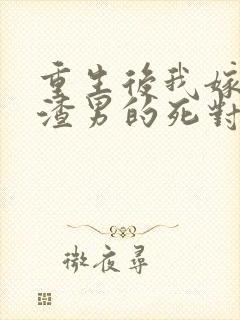 重生後我嫁
渣男的死對
微夜尋